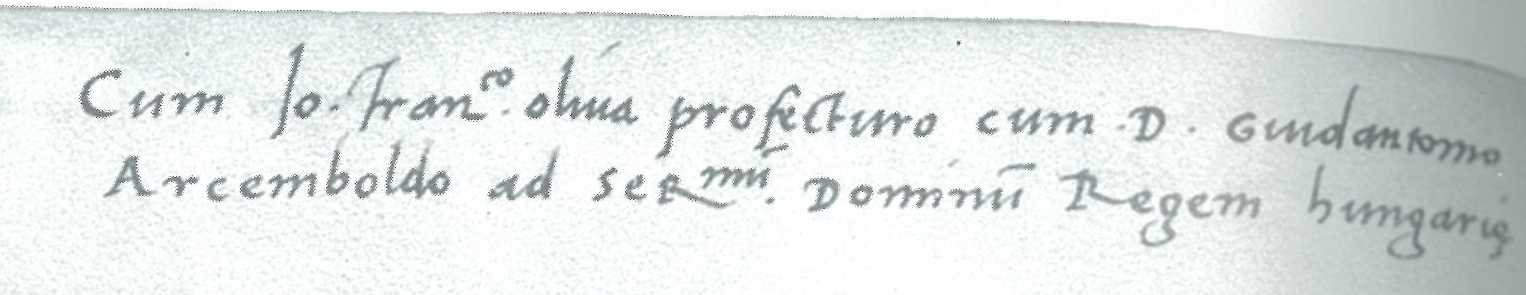 Cum Jo. Franco. oliua profecturo cum .D. Guidantonio
Arcemboldo ad Sermū. Dominū Regem hungarię